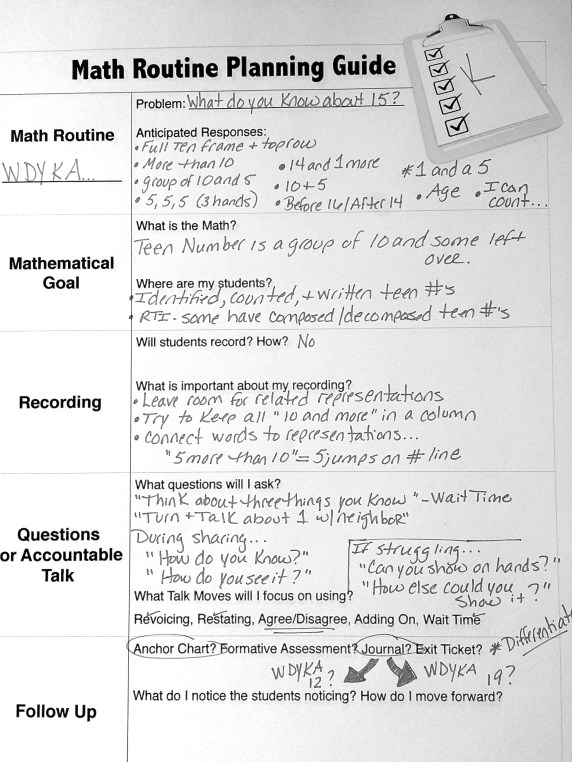 K
Math Routine Planning Guide
Math Routine
WDYKA...
Problem: What do you Know about 15?
Anticipated Responses:
• Full Ten Frame + top row
• More than 10
• group of 10 and 5
• 5, 5, 5 (3 hands)
• 14 and 1 more
• 10+5
• Before 16/After 14
*1 and a 5
• Age
• I can
count...
Mathematical
Goal
What is the Math?
Teen Number is a group of 10 and some left
over.
Where are my students?
• Identified, counted, + written teen #'s
• RTI - some have composed/decomposed teen #'s
Recording
Will students record? How? No
What is important about my recording?
• Leave room for related representations
• Try to Keep all "10 and more" in a column
• Connect words to representations...
"5 more than 10" = 5 jumps on # line
Questions
or Accountable
Talk
What questions will I ask?
"Think about three things you Know" - Wait Time
"Turn + Talk about 1 w/ neighbor"
During sharing...
"How do you Know?"
"How do you see it?"
If struggling...
"Can you show on hands?"
"How else could you
show it?"
What Talk Moves will I focus on using?
Revoicing, Restating, Agree/Disagree, Adding On, Wait Time
Follow Up
Anchor Chart? Formative Assessment? Journal? Exit Ticket? * Differentiate
WDYKA
12?
WDYKA
19?
What do I notice the students noticing? How do I move forward?